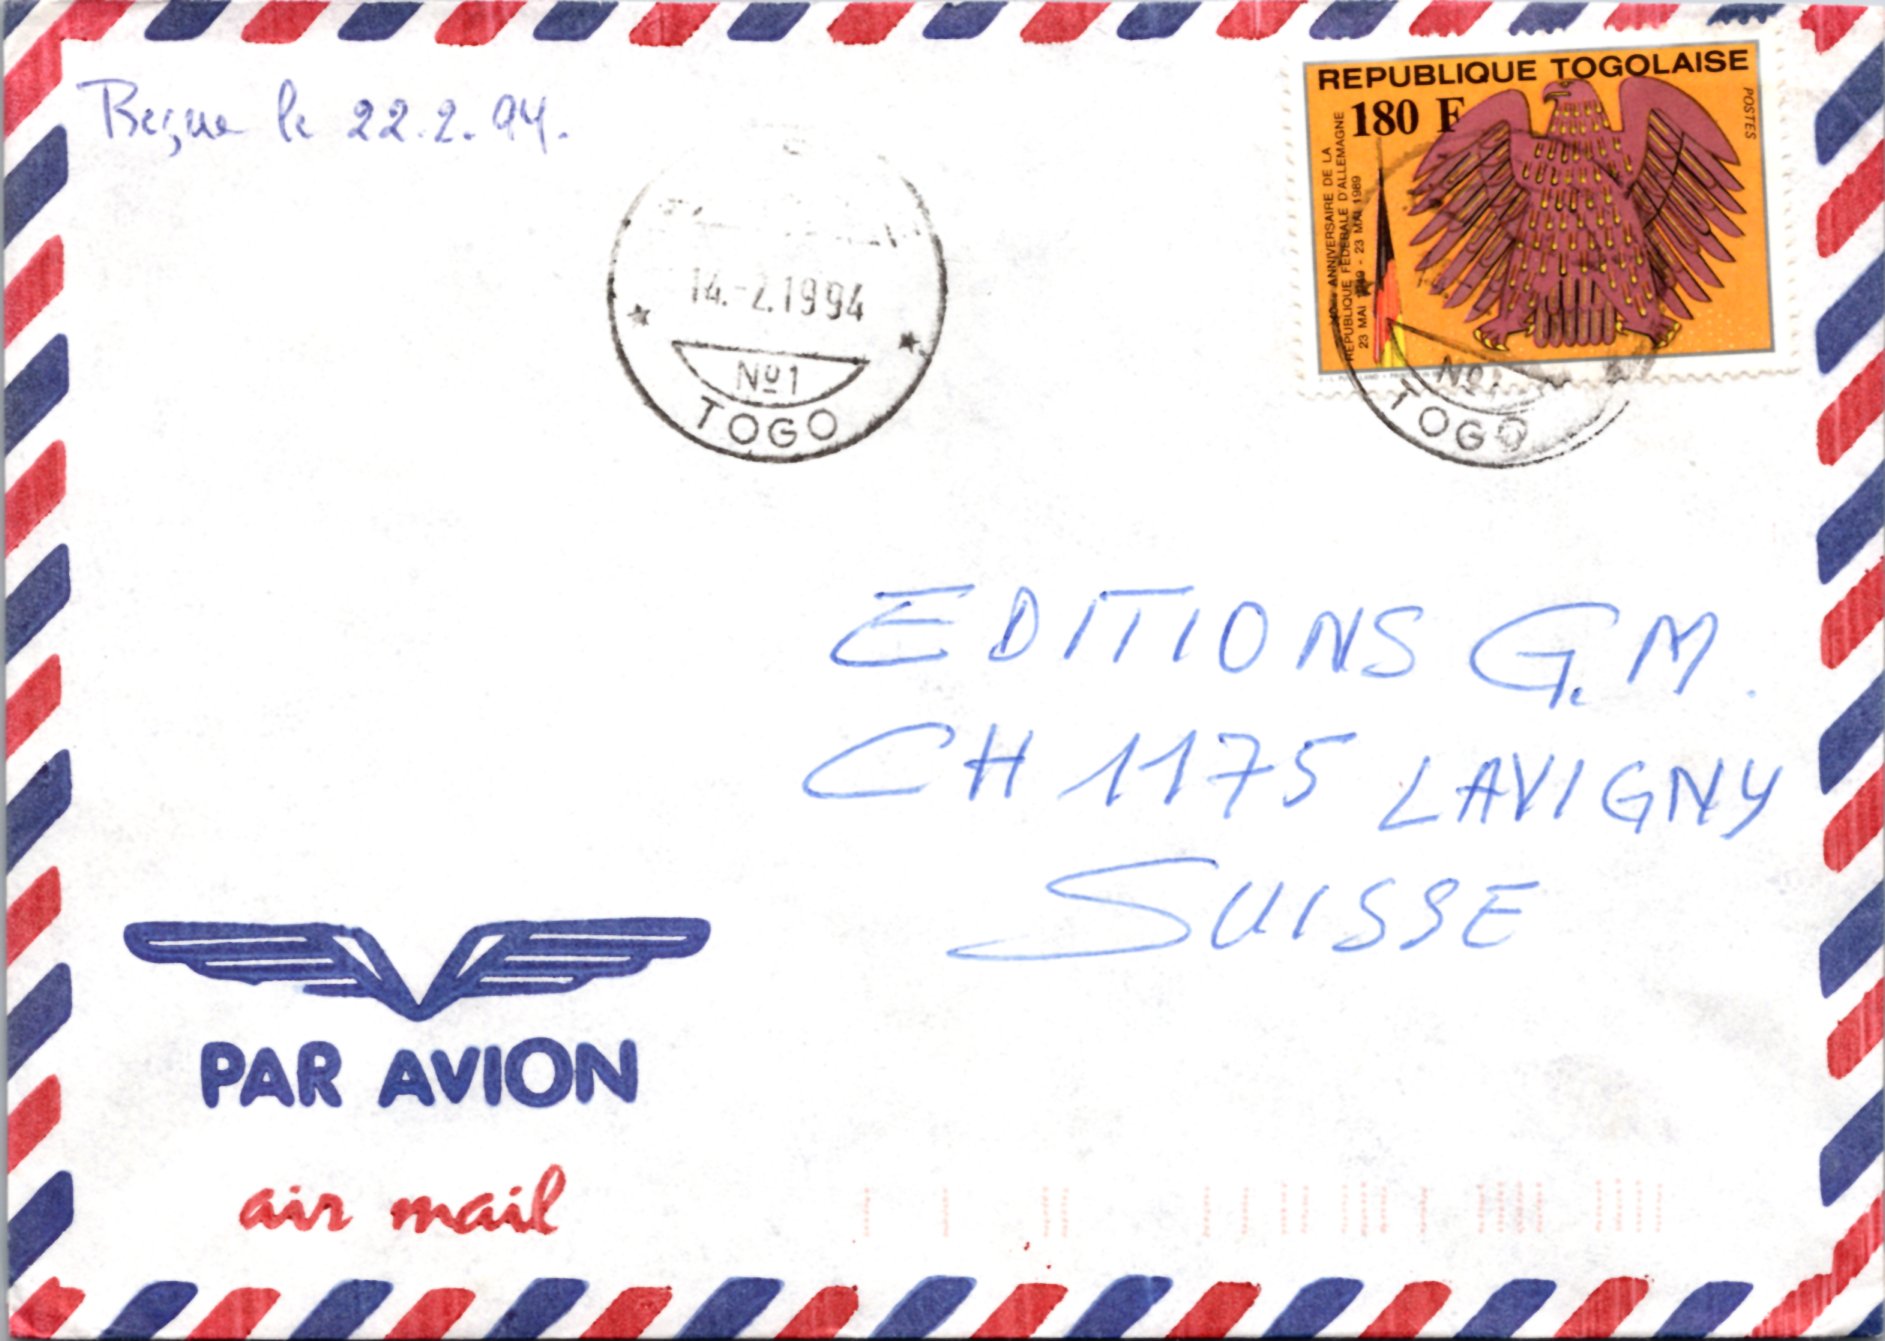 Reçue le 22.2.94.
REPUBLIQUE TOGOLAISE
180 F
POSTES
ANNIVERSAIRE DE LA
REPUBLIQUE FEDERALE D'ALLEMAGNE
23 MAI 1949 - 23 MAI 1989
14.-2.1994
Nº1
TOGO
Nº1
TOGO
EDITIONS G.M.
CH 1175 LAVIGNY
SUISSE
PAR AVION
air mail